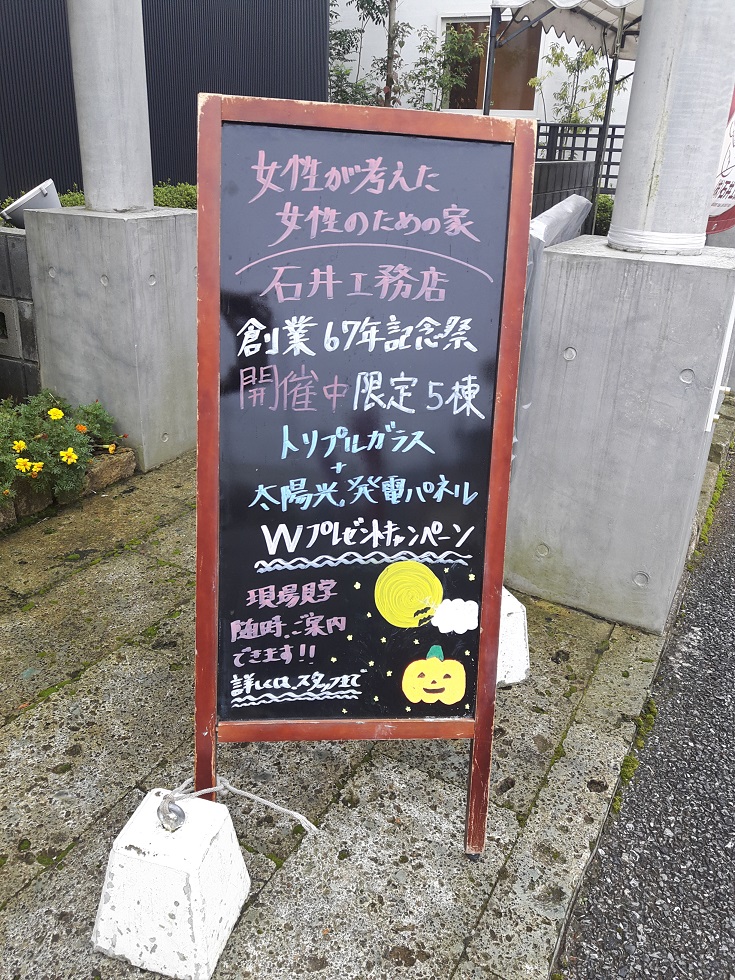 女性が考えた
女性のための家
石井工務店
創業67年記念祭
開催中限定5棟
トリプルガラス
+
太陽光発電パネル
Wプレゼントキャンペーン
現場見学
随時、ご案内
できます!!
詳しくは、スタッフまで